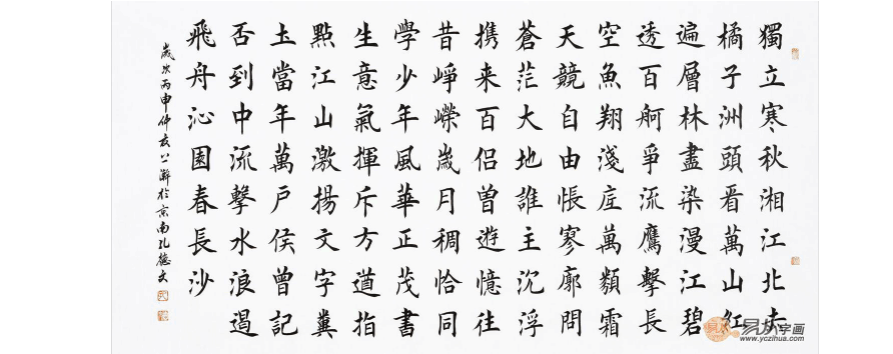 獨立寒秋湘江北去
橘子洲頭看萬山紅
遍層林盡染漫江碧
透百舸爭流鷹擊長
空魚翔淺底萬類霜
天競自由悵寥廓問
蒼茫大地誰主沉浮
携来百侣曾遊憶往
昔崢嶸歲月稠恰同
學少年風華正茂書
生意氣揮斥方遒指
點江山激揚文字糞
土當年萬戶侯曾記
否到中流擊水浪遏
飛舟沁園春長沙
歲次丙申於京南孔德文
易从字画
www.yczihua.com